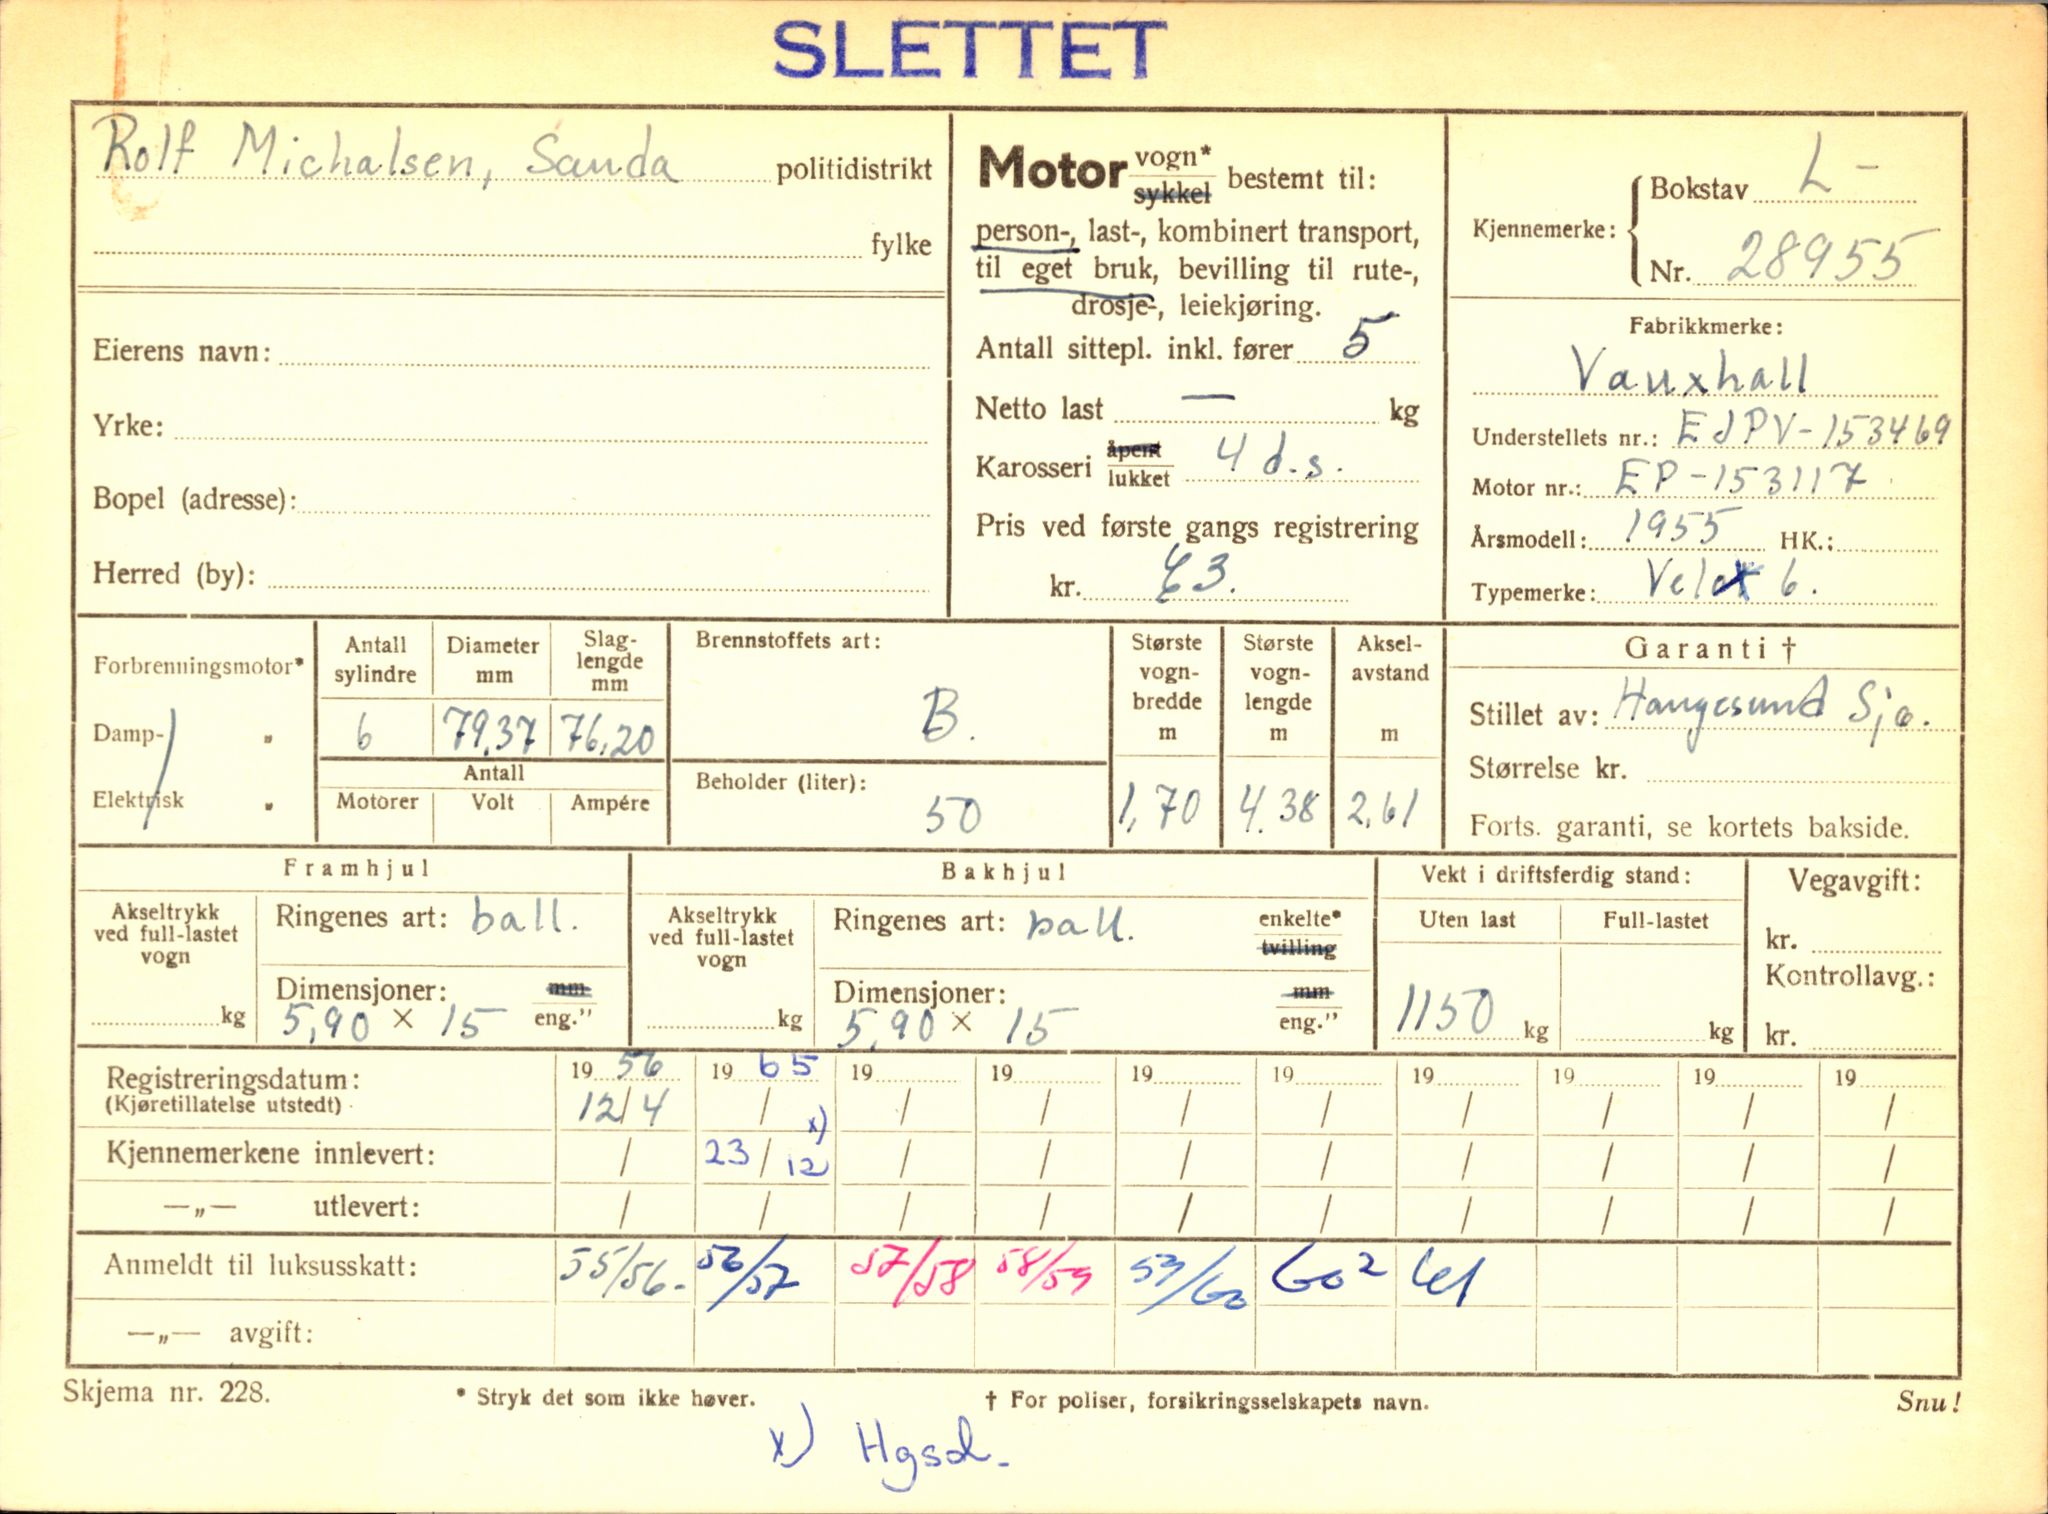 SLETTET
Rolf Michalsen, Sauda politidistrikt
fylke
Eierens navn:
Yrke:
Bopel (adresse):
Herred (by):
Motor vogn* sykkel bestemt til:
person-, last-, kombinert transport,
til eget bruk, bevilling til rute-,
drosje-, leiekjøring.
Antall sittepl. inkl. fører 5
Netto last — kg
Karosseri åpent lukket 4 d.s.
Pris ved første gangs registrering
kr. £3.
Kjennemerke: Bokstav L-
Nr. 28955
Fabrikkmerke:
Vauxhall
Understellets nr.: EJPV-153469
Motor nr.: EP-153117
Årsmodell: 1955 HK.:
Typemerke: Velox 6.
Forbrenningsmotor*
Damp- „
Elektrisk „
Antall sylindre
Diameter mm
Slag-lengde mm
6 79,37 76,20
Antall
Motorer Volt Ampére
Brennstoffets art:
B.
Beholder (liter):
50
Største vogn-bredde m
Største vogn-lengde m
Aksel-avstand m
1,70 4.38 2,61
Garanti †
Stillet av: Haugesund Sjø.
Størrelse kr.
Forts. garanti, se kortets bakside.
Framhjul
Akseltrykk ved full-lastet vogn
kg
Ringenes art: ball.
Dimensjoner: mm
5,90 × 15 eng."
Bakhjul
Akseltrykk ved full-lastet vogn
kg
Ringenes art: ball. enkelte* tvilling
Dimensjoner: mm
5,90 × 15 eng."
Vekt i driftsferdig stand:
Uten last Full-lastet
1150 kg kg
Vegavgift:
kr.
Kontrollavg.:
kr.
Registreringsdatum: 19 56 19 65 19 19 19 19 19 19 19 19
(Kjøretillatelse utstedt) 12/4 / / / / / / / / /
Kjennemerkene innlevert: / 23/12 x) / / / / / / / /
—„— utlevert: / / / / / / / / / /
Anmeldt til luksusskatt: 55/56- 56/57 57/58 58/59 59/60 60² 61
—„— avgift:
Skjema nr. 228. * Stryk det som ikke høver. † For poliser, forsikringsselskapets navn. Snu!
x) Hgsd.